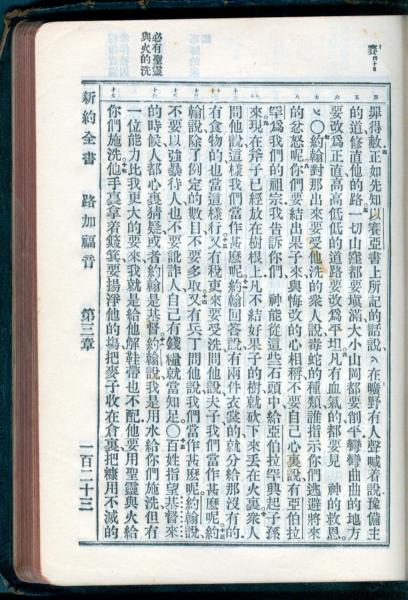 賽四十〇
必有聖靈
與火的洗
罪得赦正如先知以賽亞書上所記的話說在曠野有人聲喊着說豫備主
的道修直他的路一切山窪都要填滿大小山岡都要削平彎彎曲曲的地方
要改爲正直高高低低的道路要改爲平坦凡有血氣的都要見 神的救恩
〇約翰對那出來要受他洗的衆人說毒蛇的種類誰指示你們逃避將來
的忿怒呢你們要結出果子來與悔改的心相稱不要自己心裏說有亞伯拉
罕爲我們的祖宗我告訴你們 神能從這些石頭中給亞伯拉罕興起子孫
來現在斧子已經放在樹根上凡不結好果子的樹就砍下來丟在火裏衆人
問他說這樣我們當作甚麼呢約翰回答說有兩件衣裳的就分給那沒有的
有食物的也當這樣行又有稅吏來要受洗問他說夫子我們當作甚麼呢約
翰說除了例定的數目不要多取又有兵丁問他說我們當作甚麼呢約翰說
不要以強暴待人也不要訛詐人自己有錢糧就當知足〇百姓指望基督來
的時候人都心裏猜疑或者約翰是基督約翰說我是用水給你們施洗但有
一位能力比我更大的要來我就是給他解鞋帶也不配他要用聖靈與火給
你們施洗他手裏拿着簸箕要揚淨他的場把麥子收在倉裏把糠用不滅的
新約全書 路加福音 第三章 一百二十三